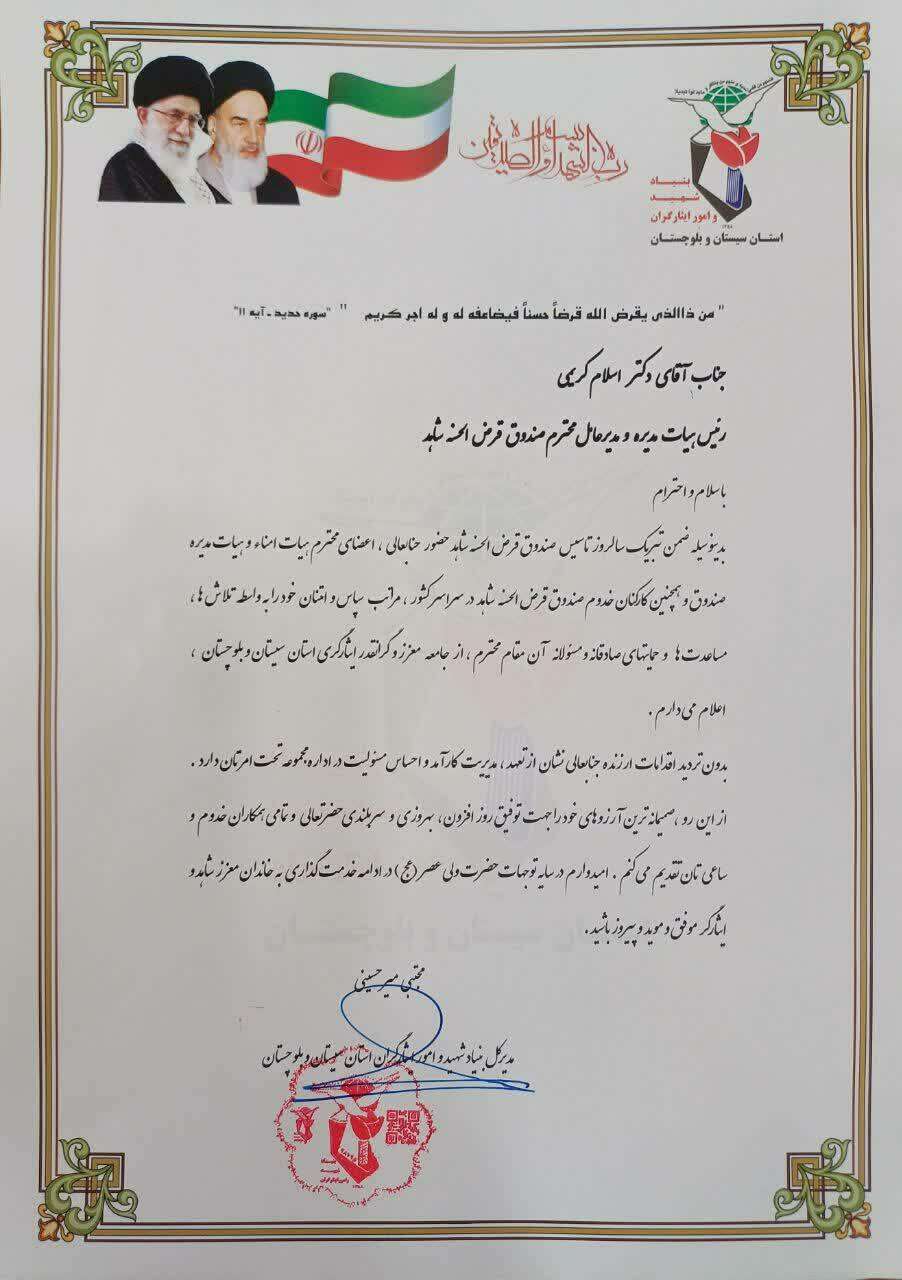 بسم رب الشهداء و الصدیقین
بنیاد
شهید
و امور ایثارگران
۱۳۵۸
استان سیستان و بلوچستان
" من ذاالذی یقرض الله قرضاً حسناً فیضاعفه له و له اجر کریم " "سوره حدید - آیه ۱۱"
جناب آقای دکتر اسلام کریمی
رئیس هیات مدیره و مدیرعامل محترم صندوق قرض الحسنه شاهد
با سلام و احترام
بدینوسیله ضمن تبریک سالروز تاسیس صندوق قرض الحسنه شاهد حضور جنابعالی ، اعضای محترم هیات امناء و هیات مدیره
صندوق و همچنین کارکنان خدوم صندوق قرض الحسنه شاهد در سراسر کشور ، مراتب سپاس و امتنان خود را به واسطه تلاش ها ،
مساعدت ها و حمایتهای صادقانه و مسئولانه آن مقام محترم ، از جامعه معزز و گرانقدر ایثارگری استان سیستان و بلوچستان ،
اعلام می دارم .
بدون تردید اقدامات ارزنده جنابعالی نشان از تعهد ، مدیریت کارآمد و احساس مسئولیت در اداره مجموعه تحت امرتان دارد .
از این رو ، صمیمانه ترین آرزوهای خود را جهت توفیق روز افزون، بهروزی و سربلندی حضرتعالی و تمامی همکاران خدوم و
ساعی تان تقدیم می کنم . امیدوارم در سایه توجهات حضرت ولی عصر (عج) در ادامه خدمت گذاری به خاندان معزز شاهد و
ایثارگر موفق و موید و پیروز باشید .
مجتبی میرحسینی
مدیرکل بنیاد شهید و امور ایثارگران استان سیستان و بلوچستان